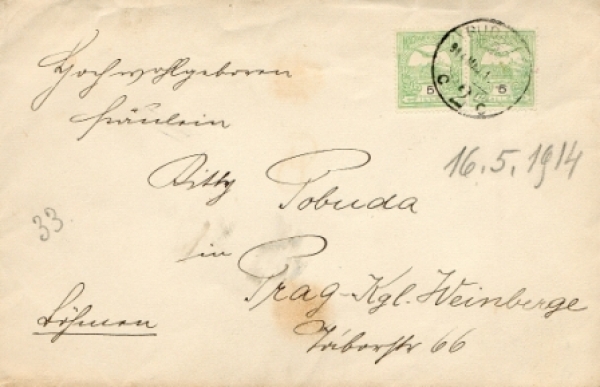 Hochwohlgeboren
Fräulein
Ditty Pobuda
in
Prag-Kgl. Weinberge
Táborstr 66
Böhmen
16.5.1914
33
5
5